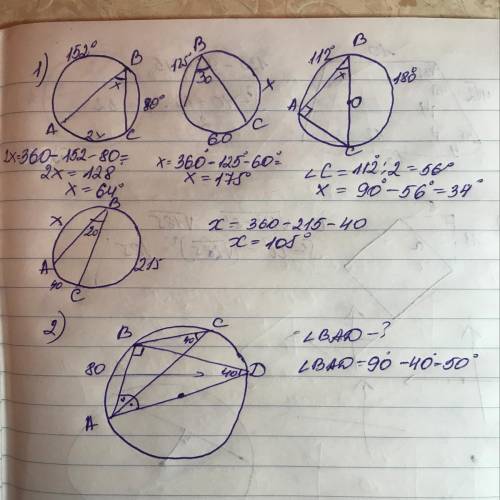 1)
152° B
x
80°
A 2x C
125° B
30
x
C
60
112° B
x
180°
A
O
C
2x=360-152-80=
2x = 128
x = 64°
x=360°-125°-60°=
x = 175°
∠C = 112°:2 = 56°
x = 90°-56°=34°
x B
20
A
40 C
215
x = 360-215-40
x = 105°
2)
B C
40°
80
40 D
A
∠BAD-?
∠BAD=90°-40°=50°